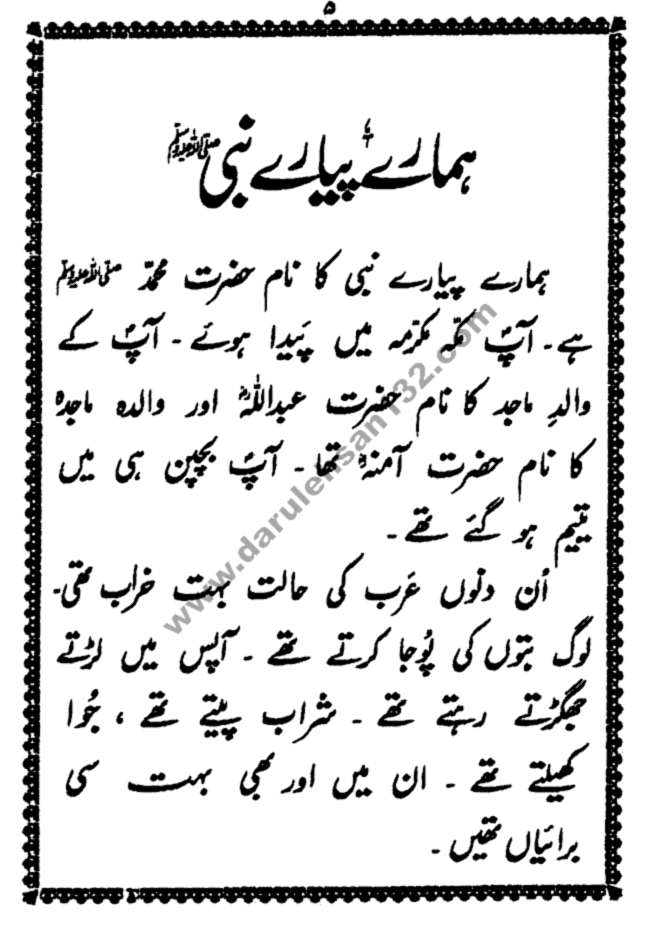 ۵
ہمارے پیارے نبی ﷺ
ہمارے پیارے نبی کا نام حضرت محمدّ ﷺ
ہے۔ آپؐ مکّہ مکرّمہ میں پَیدا ہوئے۔ آپؐ کے
والدِ ماجد کا نام حضرت عبداللہؓ اور والدہ ماجدہ
کا نام حضرت آمنہؓ تھا۔ آپؐ بچپن ہی میں
یتیم ہو گئے تھے۔
اُن دنوں عَرب کی حالت بہت خراب تھی۔
لوگ بتوں کی پُوجا کرتے تھے۔ آپس میں لڑتے
جھگڑتے رہتے تھے۔ شراب پیتے تھے، جُوا
کھیلتے تھے۔ ان میں اور بھی بہت سی
برائیاں تھیں۔
www.darulehsan132.com